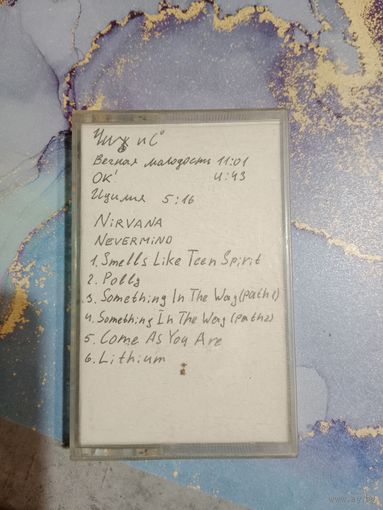 Чиж и С°
Вечная молодость 11:01
ОК! 4:43
Иуилия 5:16
NiRVANA
NEVERMIND
1. Smells Like Teen Spirit
2. Polly
3. Something In The Way (path1)
4. Something In The Way (path2)
5. Come As You Are
6. Lithium